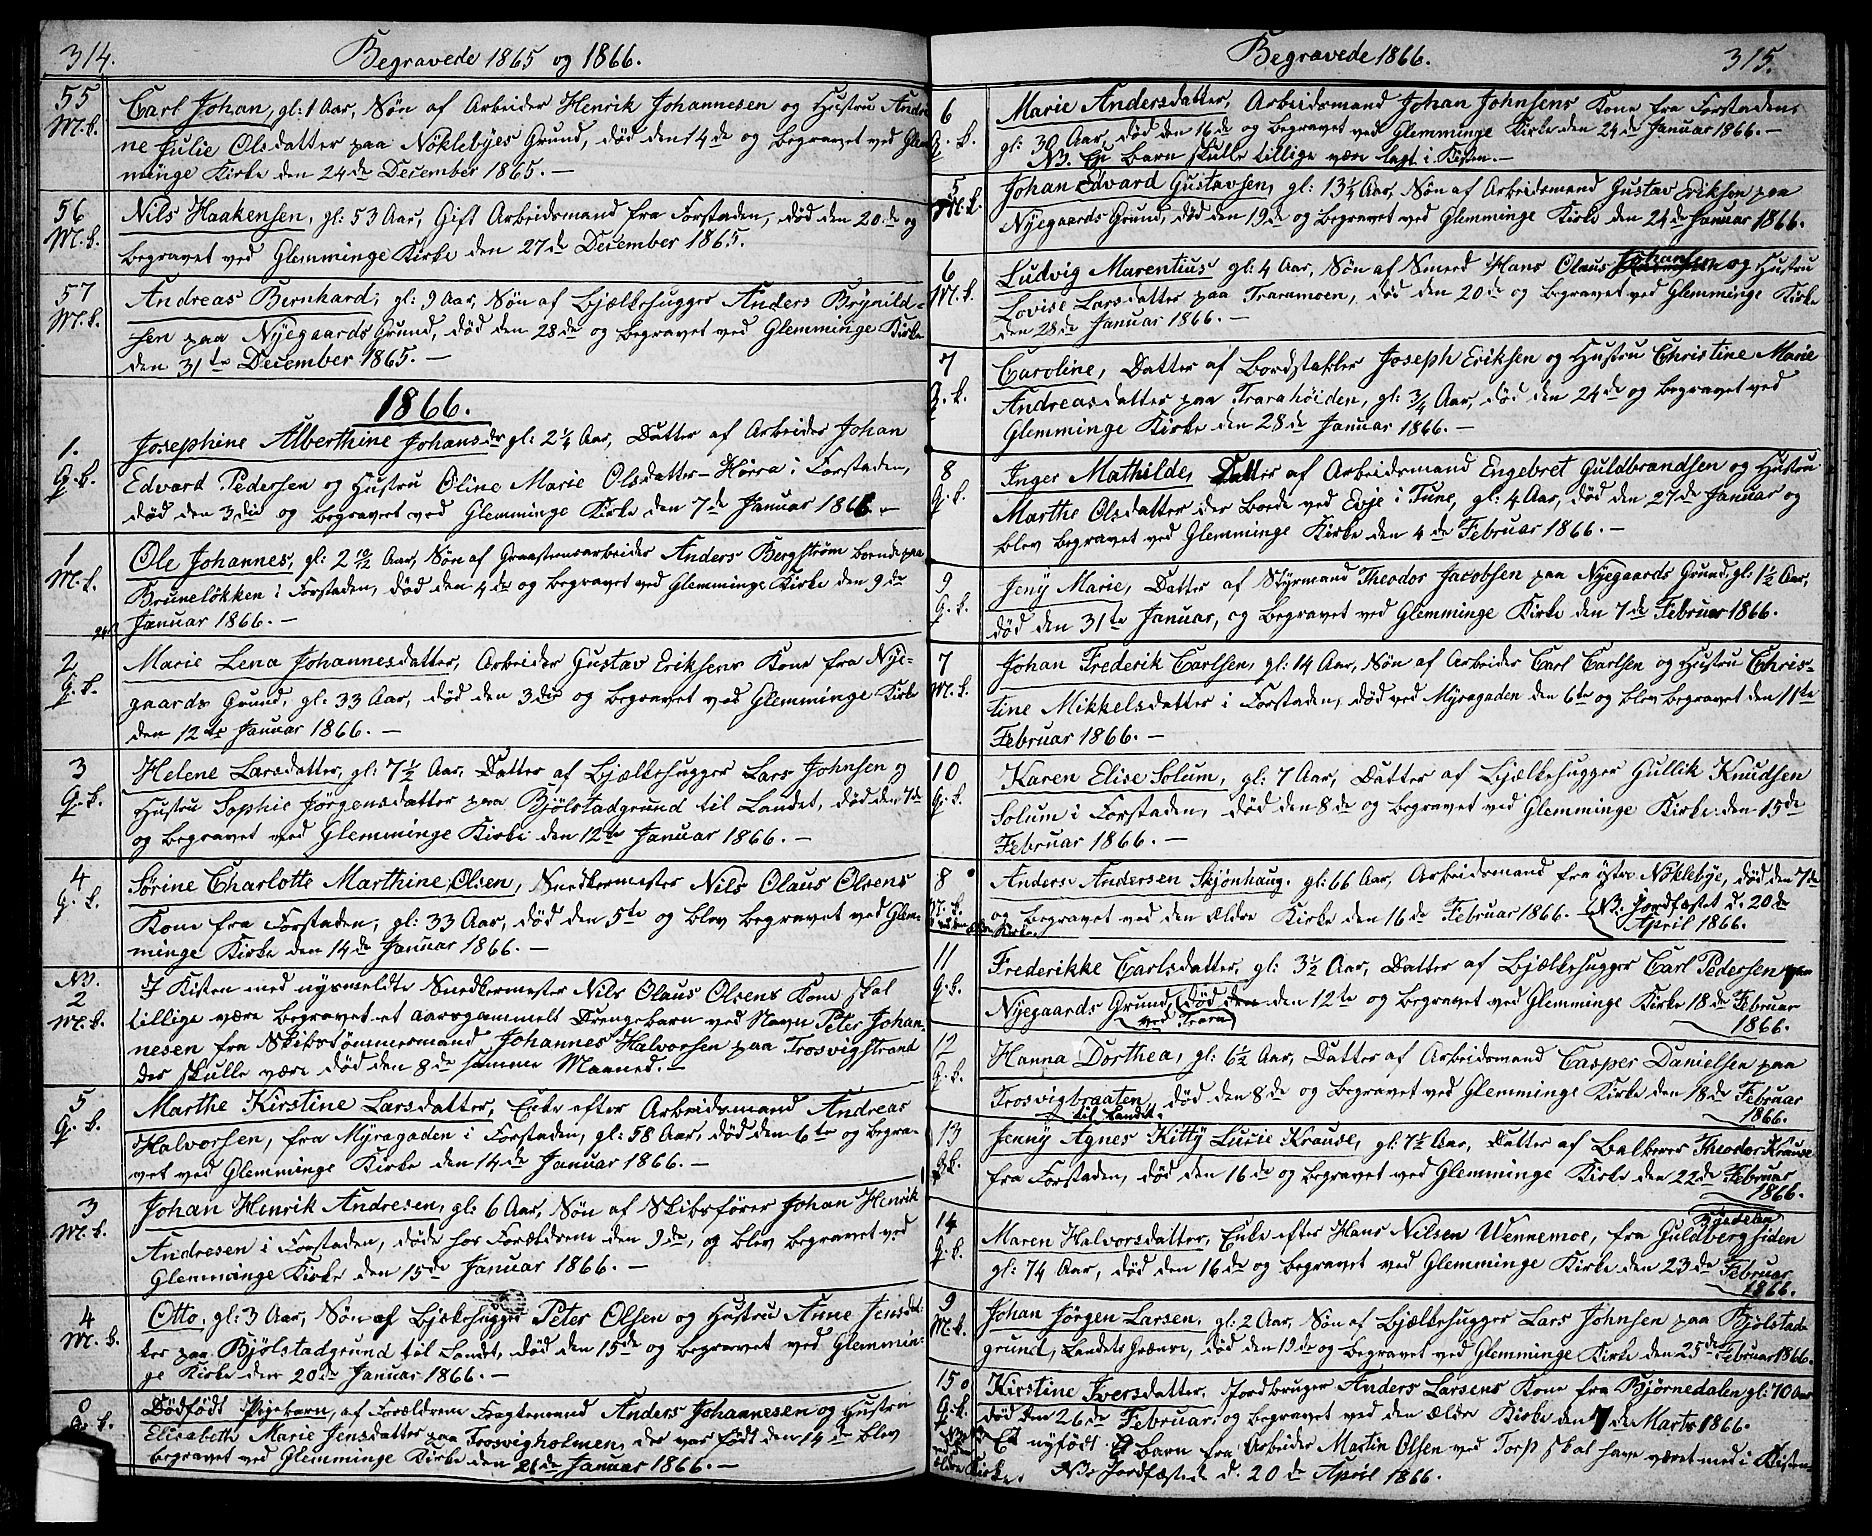 314.
Begravede 1865 og 1866.
55 M.k.
Carl Johan, gl: 1 Aar, Søn af Arbeider Henrik Johannesen og Hustru Andri-
ne Julie Olsdatter paa Nöklebyes Grund, død den 14de og begravet ved Glem-
minge Kirke den 24de December 1865. —
56 M.k.
Nils Haakensen, gl: 53 Aar, Gift Arbeidsmand fra Forstaden, død den 20de og
begravet ved Glemminge Kirke den 27de December 1865.
57 M.k.
Andreas Bernhard, gl: 9 Aar, Søn af Bjælkehugger Anders Brynild-
sen paa Nyegaards Grund, død den 28de og begravet ved Glemminge Kirke
den 31te December 1865. —
1866.
1. Q.k.
Josephine Alberthine Johansdr gl: 2 1/4 Aar, Datter af Arbeider Johan
Edvard Pedersen og Hustru Oline Marie Olsdatter — i Forstaden,
død den 3die og begravet ved Glemminge Kirke den 7de Januar 1866. —
1 M.k.
Ole Johannes, gl: 2 10/12 Aar, Søn af Graastensarbeider Anders Bergström boende paa
Bruneløkken i Forstaden, død den 4de og begravet ved Glemminge Kirke den 9de
Januar 1866. —
2 Q.k.
Marie Lena Johannesdatter, Arbeider Gustav Eriksens Kone fra Nye-
gaards Grund, gl: 33 Aar, død den 3die og begravet ved Glemminge Kirke
den 12te Januar 1866. —
3 Q.k.
Helene Larsdatter, gl: 7 1/2 Aar, Datter af Bjælkehugger Lars Johnsen og
Hustru Sophie Jörgensdatter paa Bjölstadgrund til Landet, død den 7de
og begravet ved Glemminge Kirke den 12te Januar 1866. —
4 Q.k.
Sørine Charlotte Marthine Olsen, Snedkermester Nils Olaus Olsens
Kone fra Forstaden, gl: 33 Aar, død den 5te og blev begravet ved Glem-
minge Kirke den 14de Januar 1866. —
NB. 2 M.k.
I Kisten med nysmeldte Snedkermester Nils Olaus Olsens Kone skal
tillige være begravet et aarsgammelt Drengebarn ved Navn Peter Johan-
nesen fra Skibstömmermand Johannes Halvorsen paa Trosvigstrand
der skulle være død den 8de samme Maaned. —
5 Q.k.
Marthe Kirstine Larsdatter, Enke efter Arbeidsmand Andreas
Halvorsen, fra Myragaden i Forstaden, gl: 58 Aar, død den 6te og begra-
vet ved Glemminge Kirke den 14de Januar 1866. —
3 M.k.
Johan Henrik Andresen, gl: 6 Aar, Søn af Skibsfører Johan Henrik
Andresen i Forstaden, døde hos Forældrene den 9de, og blev begravet ved
Glemminge Kirke den 15de Januar 1866. —
4 M.k.
Otto, gl: 3 Aar, Søn af Bjelkehugger Peter Olsen og Hustru Anne Jensdat-
ter paa Bjölstadgrund til Landet, død den 15de og begravet ved Glemmin-
ge Kirke den 20de Januar 1866. —
0 Q.k.
Dødfödt Pigebarn, af Forældrene Fragtemand Anders Johannesen og Hustru
Elisabeth Marie Jensdatter paa Trosvigholmen, der var født den 14de blev
begravet ved Glemminge Kirke den 21de Januar 1866. —
Begravede 1866.
315.
6 Q.k.
Marie Andersdatter, Arbeidsmand Johan Johnsens Kone fra Forstaden,
gl: 30 Aar, død den 16de og begravet ved Glemminge Kirke den 24de Januar 1866. —
NB. Et Barn skulle tillige være lagt i Kisten. —
5 M.k.
Johan Edvard Gustavsen, gl: 13 1/4 Aar, Søn af Arbeidsmand Gustav Eriksen paa
Nyegaards Grund, død den 19de og begravet ved Glemminge Kirke den 24de Januar 1866.
6 M.k.
Ludvig Marentius gl: 4 Aar, Søn af Smed Hans Olaus Johansen og Hustru
Lovise Larsdatter paa Traramoen, død den 20de og begravet ved Glemminge Kirke
den 28de Januar 1866. —
7 Q.k.
Caroline, Datter af Bordstabler Joseph Eriksen og Hustru Christine Marie
Andreasdatter paa Trarahöiden, gl: 3/4 Aar, død den 24de og begravet ved
Glemminge Kirke den 28de Januar 1866. —
8 Q.k.
Inger Mathilde, Datter af Arbeidsmand Engebret Guldbrandsen og Hustru
Marthe Olsdatter der Boede ved Evje i Tune, gl: 4 Aar, død den 27de Januar og
blev begravet ved Glemminge Kirke den 4de Februar 1866. —
9 Q.k.
Jeny Marie, Datter af Styrmand Theodor Jacobsen paa Nyegaards Grund, gl: 1 1/2 Aar,
død den 31te Januar, og begravet ved Glemminge Kirke den 7de Februar 1866.
7 M.k.
Johan Frederik Carlsen, gl: 14 Aar, Søn af Arbeider Carl Carlsen og Hustru Chris-
tine Mikkelsdatter i Forstaden, død ved Myragaden den 6te og blev begravet den 11te
Februar 1866. —
10 Q.k.
Karen Elise Solum, gl: 7 Aar, Datter af Bjælkehugger Gullik Knudsen
Solum i Forstaden, død den 8de og begravet ved Glemminge Kirke den 15de
Februar 1866. —
8 M.k. ved den ældre Kirke
Anders Andersen Skjönhaug, gl: 66 Aar, Arbeidsmand fra østre Nöklebye, død den 7de
og begravet ved den ældre Kirke den 16de Februar 1866. NB: Jordfæstet d. 20de
April 1866.
11 Q.k.
Frederikke Carlsdatter, gl: 3 1/2 Aar, Datter af Bjælkehugger Carl Pedersen paa
Nyegaards Grund, død den den 12te og begravet ved Glemminge Kirke 18de Februar
ved Trara
1866.
12 Q.k.
Hanna Dorthea, gl: 6 1/2 Aar, Datter af Arbeidsmand Casper Danielsen paa
Trosvigbraaten, død den 8de og begravet ved Glemminge Kirke den 18de Februar
til Landet.
1866.
13 Q.k.
Jenny Agnes Kitty Lucie Krause, gl: 7 1/2 Aar, Datter af Balberer Theodor Krause
fra Forstaden, død den 16de og begravet ved Glemminge Kirke den 22de Februar
1866.
14 Q.k.
Maren Halvorsdatter, Enke efter Hans Nilsen Wennemoe, fra Guldbergsiden
gl: 74 Aar, død den 16de og begravet ved Glemminge Kirke den 23de Februar
1866.
9 M.k.
Johan Jörgen Larsen, gl: 2 Aar, Søn af Bjælkehugger Lars Johnsen paa Bjölstad-
grund, Landets Grændse, død den 19de og begravet ved Glemminge Kirke den 25de Februar 1866.
15 Q.k. NB ved den ældre Kirke.
Kirstine Iversdatter, Jordbruger Anders Larsens Kone fra Bjørnedalen gl: 70 Aar
død den 26de Februar, og begravet ved den ældre Kirke den 7de Marts 1866.
Et nyfödt Barn fra Arbeider Martin Olsen ved Torp skal have været med i Kisten.
NB: Jordfæstede d. 20de April 1866.